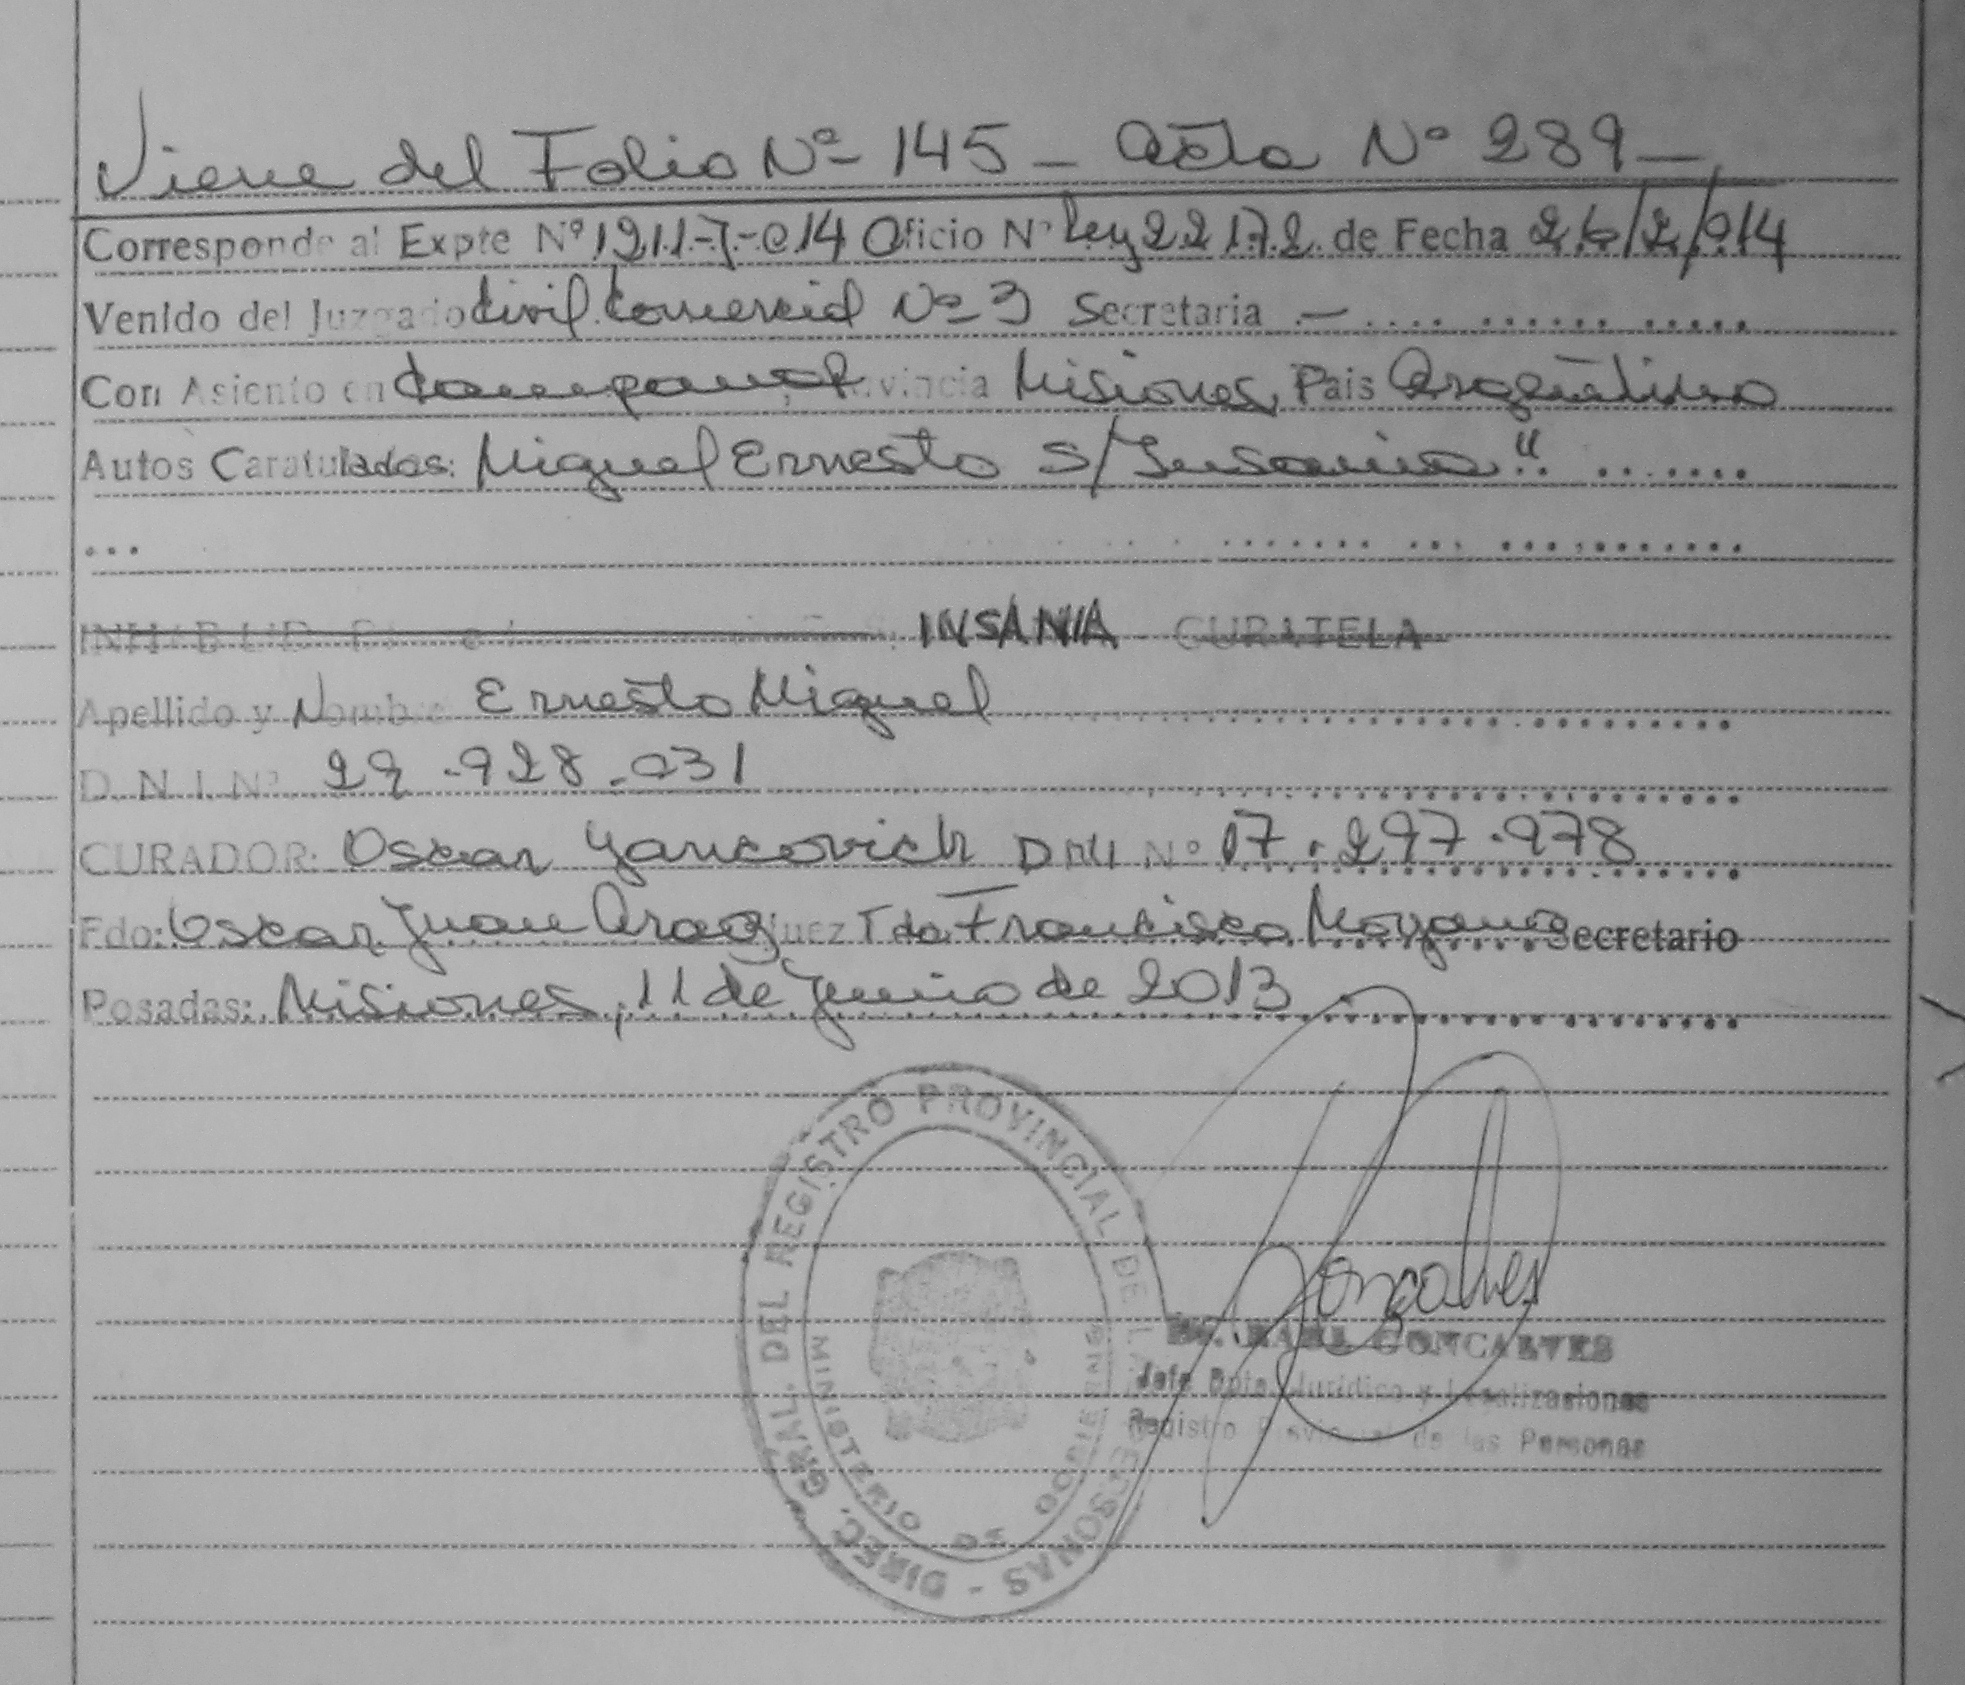 Viene del Folio Nº 145 - Acta Nº 289 -
Corresponde al Expte Nº 1211-7-014 Oficio Nº Ley 22172 de Fecha 26/2/014
Venido del Juzgado Civil Comercial Nº 3 Secretaria .- .... ...... .....
Con Asiento en Provincia Misiones, Pais Argentina
Autos Caratulados: Miguel Ernesto s/Insania" .......
... ....... ... ...........
INSANIA CURATELA
Apellido y Nombre Ernesto Miguel
D.N.I. Nº 29.928.031
CURADOR: Oscar Yancovich DNI Nº 17.297.978
Fdo: Oscar Juan Juez Fdo Francisco Moyano Secretario
Posadas: Misiones, 11 de Junio de 2013
DIREC. GRAL. DEL REGISTRO PROVINCIAL DE LAS PERSONAS -
MINISTERIO DE GOBIERNO
Goncalves
Dr. RAUL GONCALVES
Jefe Dpto. Jurídico y Legalizaciones
Registro Provincial de las Personas